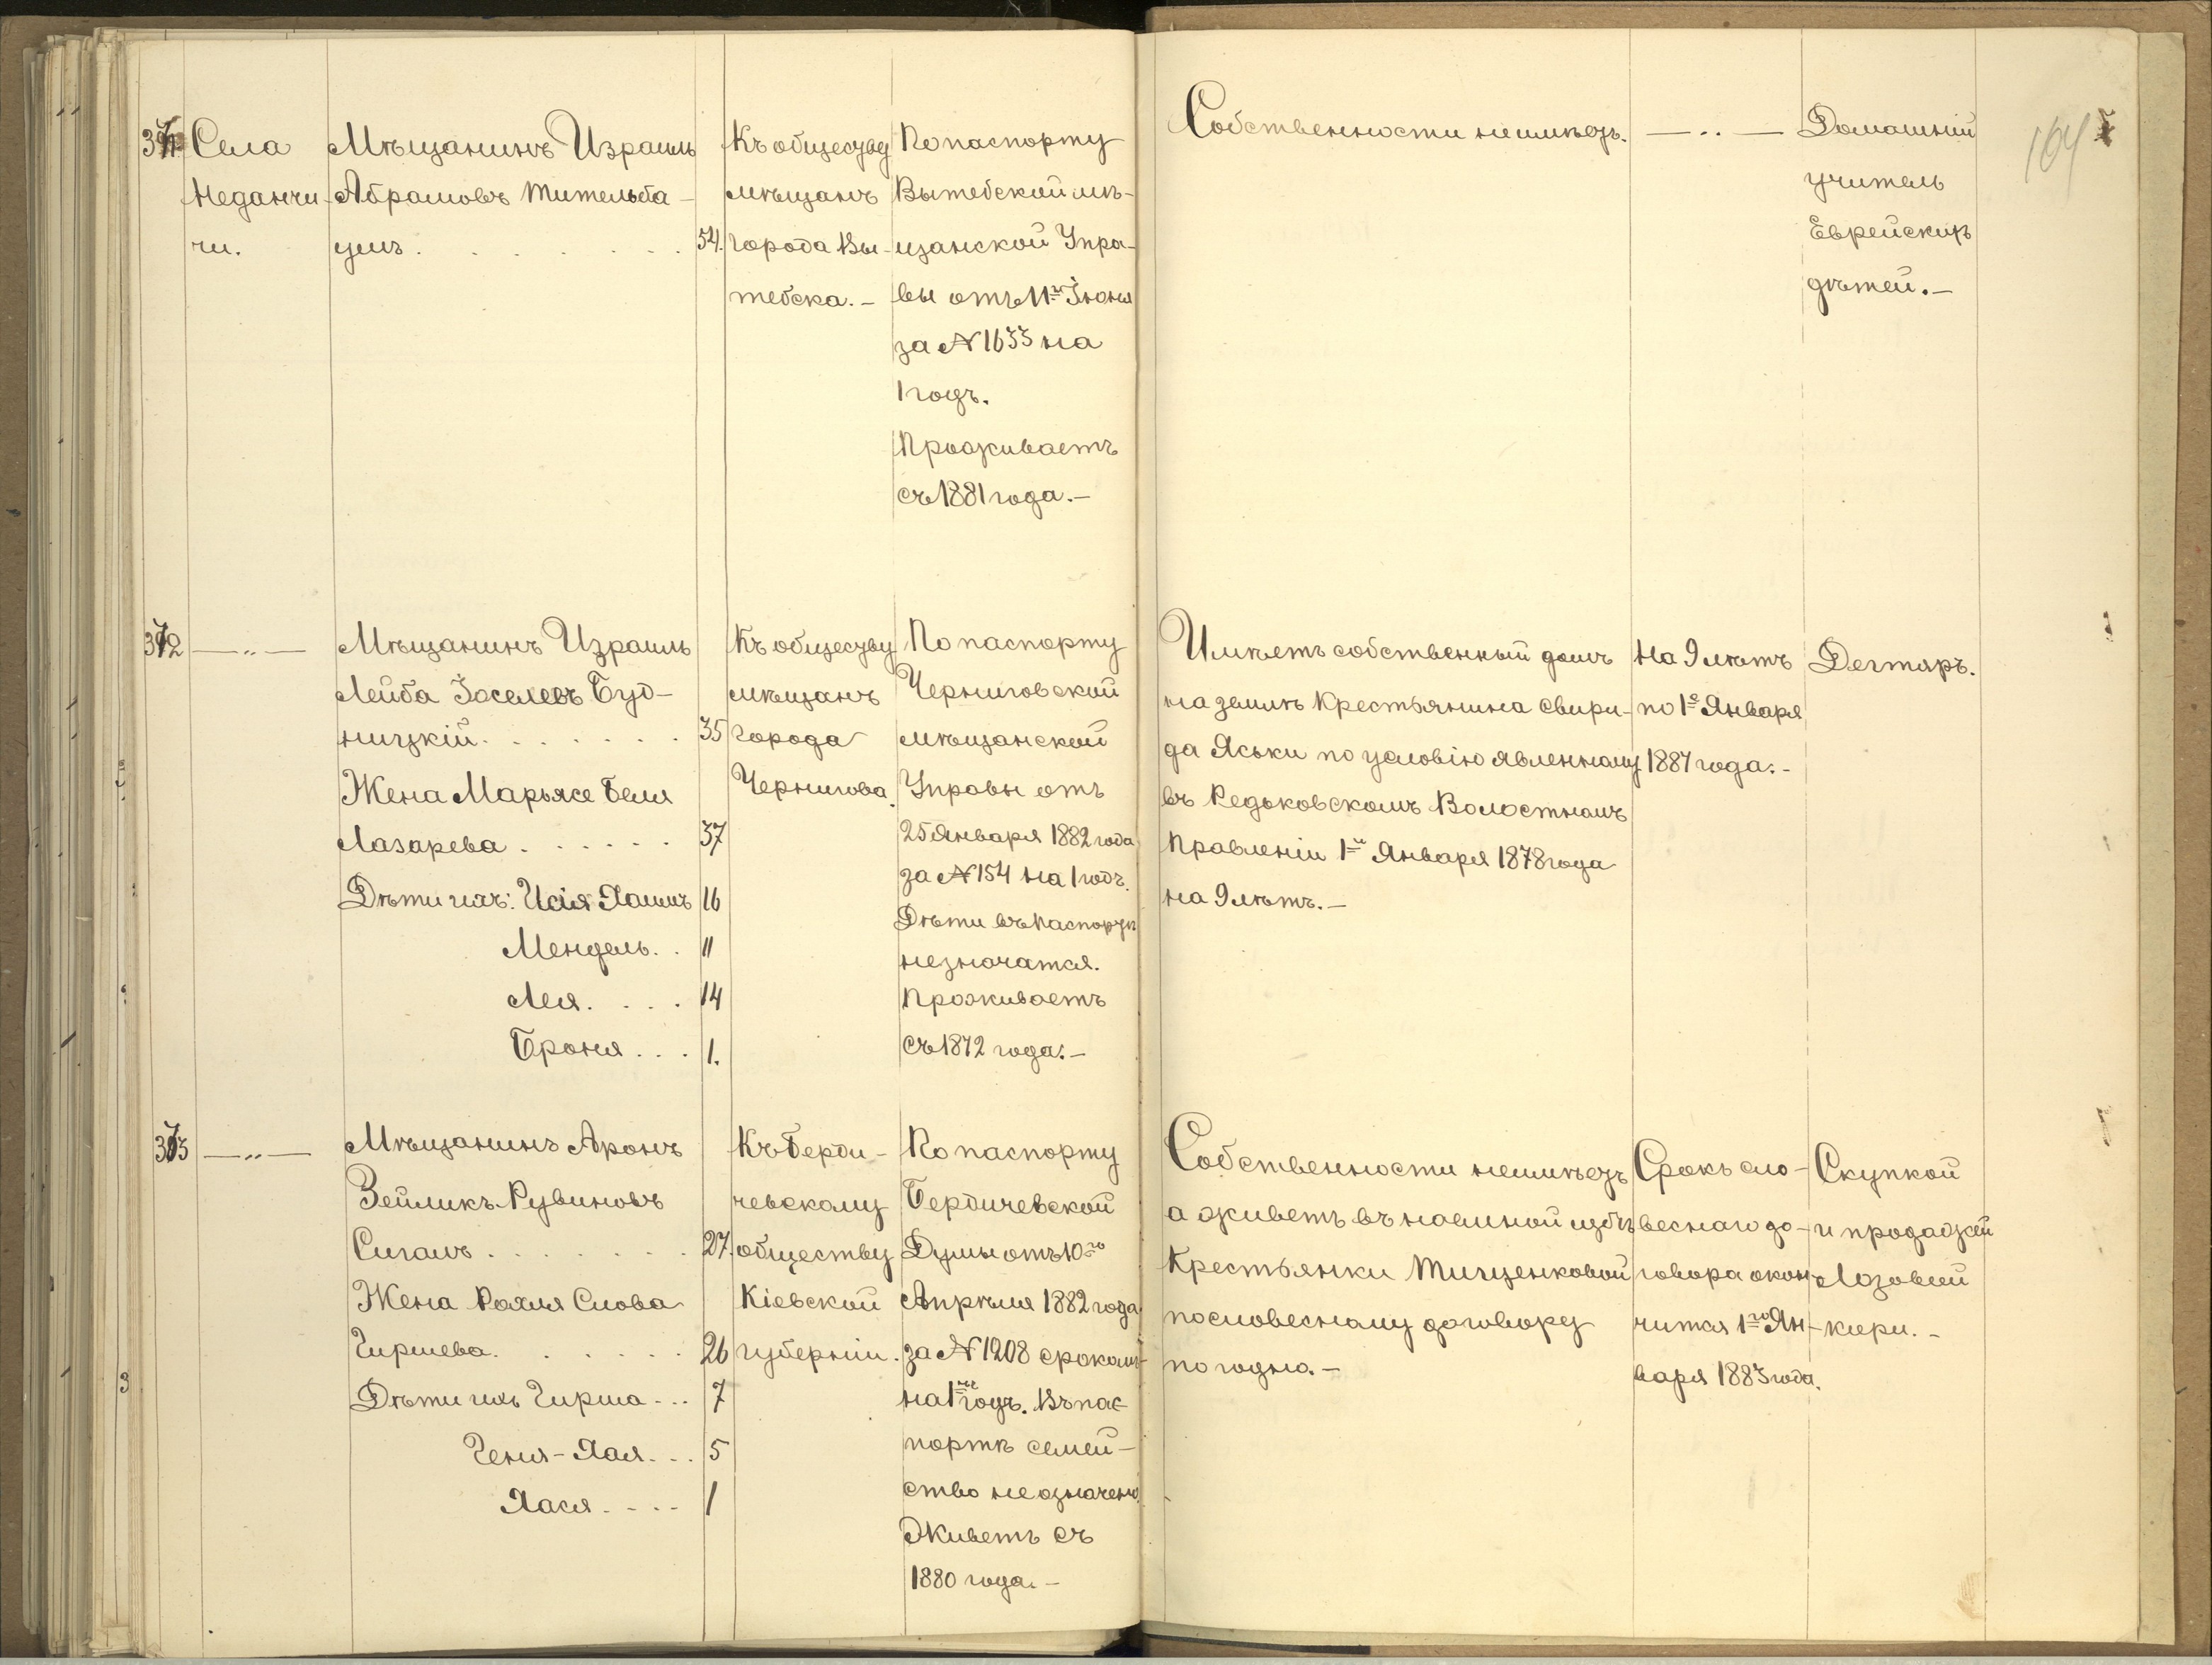 104
371 Села
Неданчи-
чи.
Мѣщанинъ Израиль
Абрамовъ Мительба-
умъ . . . . . . . 54.
Къ обществу
мѣщанъ
города Вы-
тебска. –
По паспорту
Вытебской мѣ-
щанской Упра-
вы отъ 11го Іюня
за № 1633 на
1 годъ.
Проживаетъ
съ 1881 года. –
Собственности неимѣетъ.
— „ —
Домашній
учитель
Еврейскихъ
дѣтей. –
372 — „ —
Мѣщанинъ Израиль
Лейба Іоселевъ Буд-
ницкій . . . . . . . 35
Жена Марьясе Беля
Лазарева . . . . . . 37
Дѣти ихъ: Исія Хаимъ 16
Мендель . . 11
Лея . . . . 14
Броня . . . 1.
Къ обществу
мѣщанъ
города
Чернигова.
По паспорту
Черниговской
мѣщанской
Управы отъ
25 Января 1882 года
за № 154 на 1 годъ.
Дѣти въ паспортѣ
незначатся.
Проживаетъ
съ 1872 года. –
Имѣетъ собственный домъ
на землѣ Крестьянина Свири-
да Яськи по условію явленному
въ Редьковскомъ Волостномъ
Правленіи 1го Января 1878 года
на 9 лѣтъ. –
На 9 лѣтъ
по 1е Января
1887 года. –
Дегтярь.
373 — „ —
Мѣщанинъ Аронъ
Зейликъ Рувиновъ
Сигалъ . . . . . . . 27.
Жена Рохля Слова
Гиршева . . . . . . 26
Дѣти ихъ Гирша . . . 7
Геня-Хая . . . 5
Хася . . . . 1
Къ Берди-
чевскому
обществу
Кіевской
губерніи.
По паспорту
Бердичевской
Думы отъ 10го
Апрѣля 1882 года
за № 1208 срокомъ
на 1нъ годъ. Въ пас-
портѣ семей-
ство не означено.
Живетъ съ
1880 года. –
Собственности неимѣетъ
а живетъ въ наемной избѣ
Крестьянки Тищенковой
по словесному договору
погодно. –
Срокъ сло-
веснаго до-
говора окон-
чится 1го Ян-
варя 1883 года.
Скупкой
и продажей
Лозовей
кіери. –